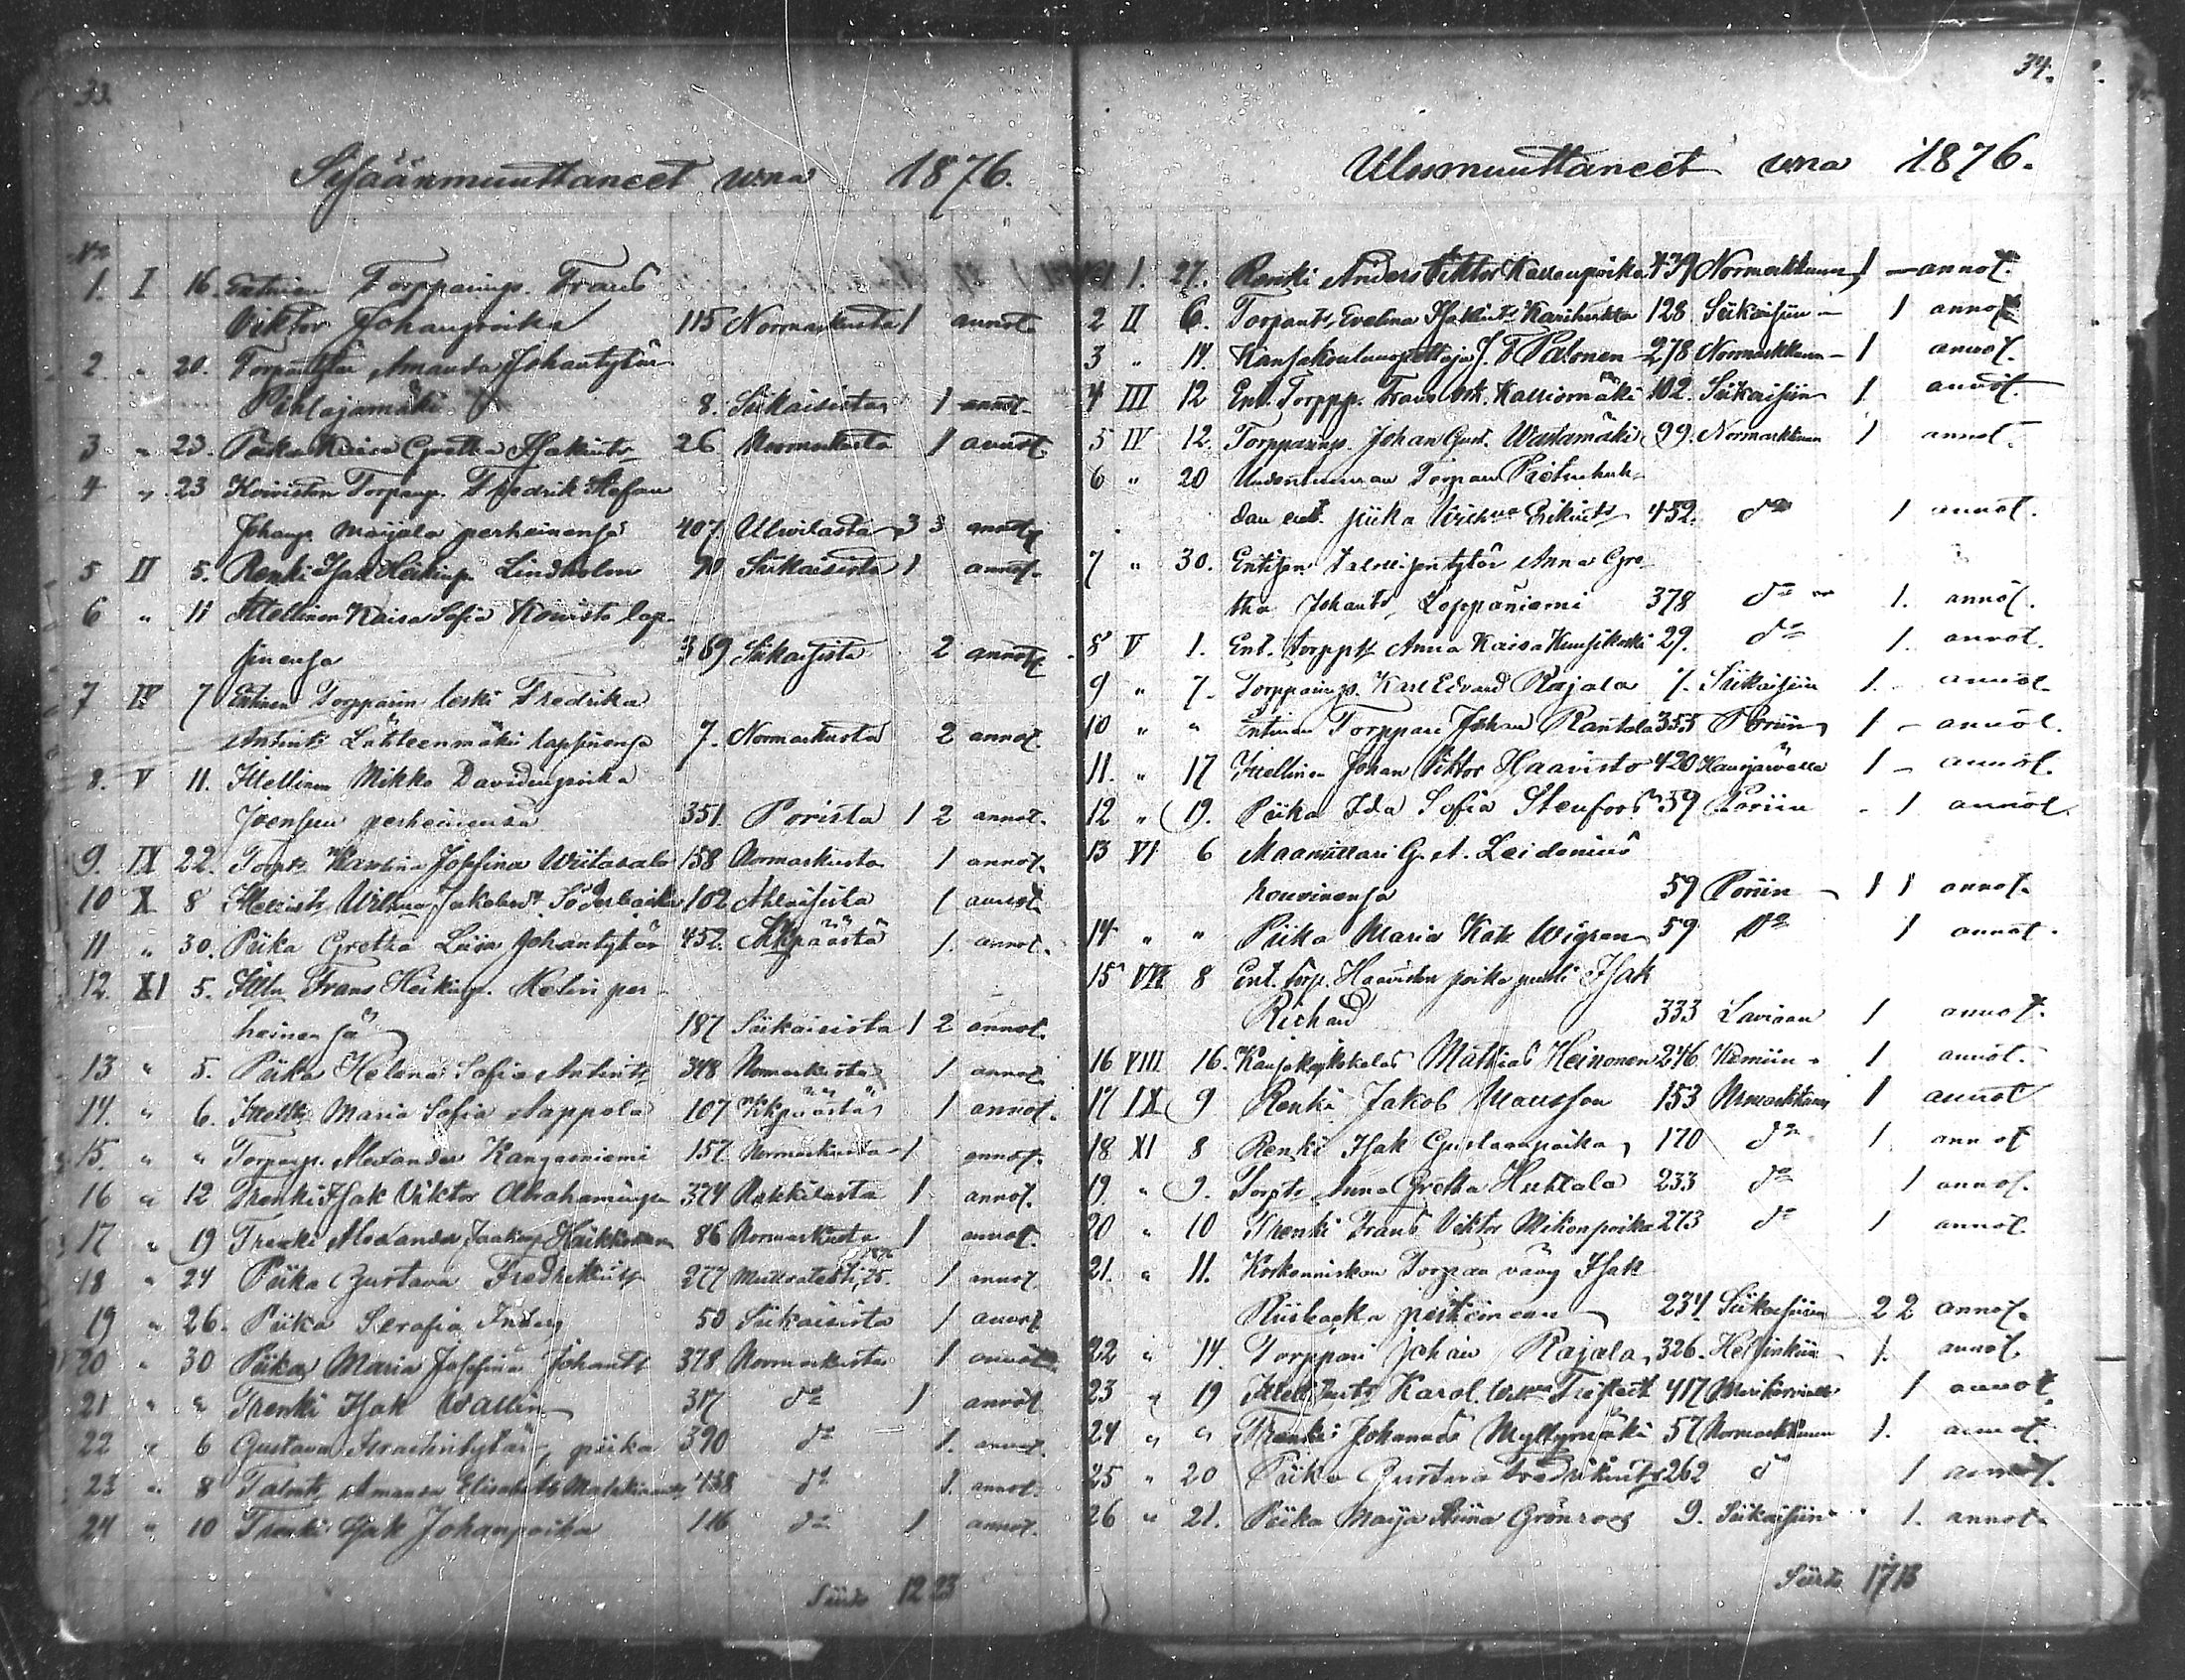 33.
Sisäänmuuttaneet wna 1876.
No
1. I 16. Entinen Torpparinp. Frans
Viktor Johanpoika 115 Normarkusta 1 annot.
2 " 20. Torparitytär Amanda Johantytär
Pihlajamäki 8. Siikaisista 1 annot.
3 " 23. Piika Kaisa Gretha Isakint. 26 Normarkusta 1 annot.
4 " 23 Koiviston Torparip. Fredrik Stefan
Johanp. Maijala perheinensä 407. Ulwilasta 3 3 annot.
5 II 5. Renki Isak Heikinp. Lindholm 90 Siikaisista 1 annot.
6 " 11 Itsellinen Kaisa Sofia Koivisto lap-
sinensa 369 Siikaisista 2 annot.
7 IV 7 Entinen Torpparin leski Fredrika
Antint. Lähteenmäki lapsinensa 7. Normarkusta 2 annot.
8. V 11. Itsellinen Mikko Davidinpoika
Joensuu perheinensä 351. Porista 1 2 annot.
9. IX 22. Torpt. Josefina Wiitasalo 158 Normarkusta 1 annot.
10 X 8 Wilhma Jakobint. Söderbacka 102 Ahlaisista 1 annot.
11 " 30. Piika Gretha Liisa Johantytär 452. Ikkpäästä 1. annot.
12. XI 5. Itsln Frans Heikinp. Melin per-
heinensä 187 Siikaisista 1 2 annot.
13 " 5. Piika Helena Sofia Antint. 348 Normarkusta 1 annot.
14. " 6. Itsellt. Maria Sofia Sappola 107 Ikkpäästä 1 annot.
15. " " Torparp. Alexander Kangasniemi 157. Normarkusta 1 annot.
16 " 12 Trenki Isak Viktor Abrahaminp. 374 Kokkilasta 1 annot.
17 " 19 Trenki Alexander Jaakonp. 86 Normarkusta 1 annot.
18 " 24 Piika Gustava Fredrikint. 277 1 annot.
19 " 26. Piika Serafia 50 Siikaisista 1 annot.
20 " 30 Piika Maria Josefina Johant. 378 Normarkusta 1 annot.
21 " " Trenki Isak Wallin 317 do 1 annot.
22 " 6 Gustava Israelintytär, piika 390 do 1. annot.
23 " 8 Talont. Amanda Elisabeth 438 do 1. annot.
24 " 10 Trenki Isak Johanpoika 116 do 1 annot.
Siirto 12 23
34.
Ulosmuuttaneet wna 1876.
1 1. 27. Renki Anders Viktor Kallenpoika 439 Normarkkuun 1 annot.
2 II 6. Torpant. Evelina Isakint. 128 Siikaisiin 1 annot.
3 " 14. Kansakoulunopettaja J. F. Palonen 278 Normarkkuun 1 annot.
4 III 12 Ent. Torppp. Frans Vik. Kalliomäki 102. Siikaisiin 1 annot.
5 IV 12. Torpparinp. Johan Gust. Wastamäki 99. Normarkkuun 1 annot.
6 " 20 Torpan
dan ent. piika Wilhma Erikint. 452. do 1 annot.
7 " 30. Entisen Talollisentytär Anna Gre-
tha Johant. Leppäniemi 378 do 1. annot.
8 V 1. Ent. torppt. Anna Kaisa Kuusikoski 29. do 1. annot.
9 " 7. Torpparinp. Karl Edvard Rajala 7. Siikaisiin 1. annot.
10 " " Entinen Torppari Johan Rantala 353 Poriin 1 annot.
11. " 17 Itsellinen Johan Viktor Haavisto 420 Kauvjärwelle 1 annot.
12 " 19. Piika Ida Sofia Stenfors 39 Poriin 1 annot.
13 VI 6 Maamittari G. A. Leidenius
rouvinensa 59 Poriin 1 1 annot.
14 " " Piika Maria Kat. Wigren 59 do 1 annot.
15 VII 8 Ent. torp. Haaviston poika Isak
Richard 333 Laviaan 1 annot.
16 VIII 16. Mathias Heinonen 246 Kemiin 1 annot.
17 IX 9 Renki Jakob Mansson 153 Nrmarkkuun 1 annot
18 XI 8 Renki Isak Gustaanpoika 170 do 1 annot
19. " 9. Torpt. Anna Gretha Huhtala 233 do 1 annot.
20 " 10 Trenki Frans Viktor Mikonpoika 273 do 1 annot.
21. " 11. Koskenniskan Torpan väwy Isak
Riisbacka perheineen 234 Siikaisiin 2 2 annot.
22 " 14. Torppari Johan Rajala 326. Helsinkiin 1. annot.
23 " 19 Karol. Wilhma 417 Merikarvialle 1 annot.
24 " " Trenki Johannes Myllymäki 57 Normarkkuun 1. annot.
25 " 20 Piika Gustava Fredrikint. 262 do 1 annot.
26 " 21. Piika Maija Stiina Grönroos 9. Siikaisiin 1. annot.
Siirto 17 13